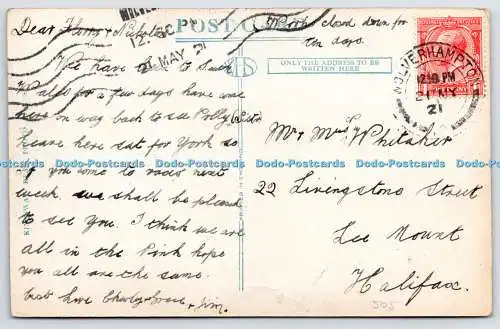 WOLVE
12 PM
21 MAY 21
POST CARD
Work closed down for
ten days.
WOLVERHAMPTON
12.30 PM
21 MY
21
ONLY THE ADDRESS TO BE
WRITTEN HERE
Dear Florrie & Nicholas
We have been to South
Wales for a few days have was
here on way back to see Polly (Sister)
leave here Sat for York so
if you come to races next
week. We shall be pleased
to see you. I think we are
all in the Pink hope
you all are the same.
best love Charley & Grace & Jim.
Mr & Mrs Whitaker
22 Livingstone Street
Lee Mount
Halifax.
505
Dodo-Postcards Dodo-Postcards Dodo-Postcards Dodo-Postcards Dodo-Postcards Dodo-Postcards